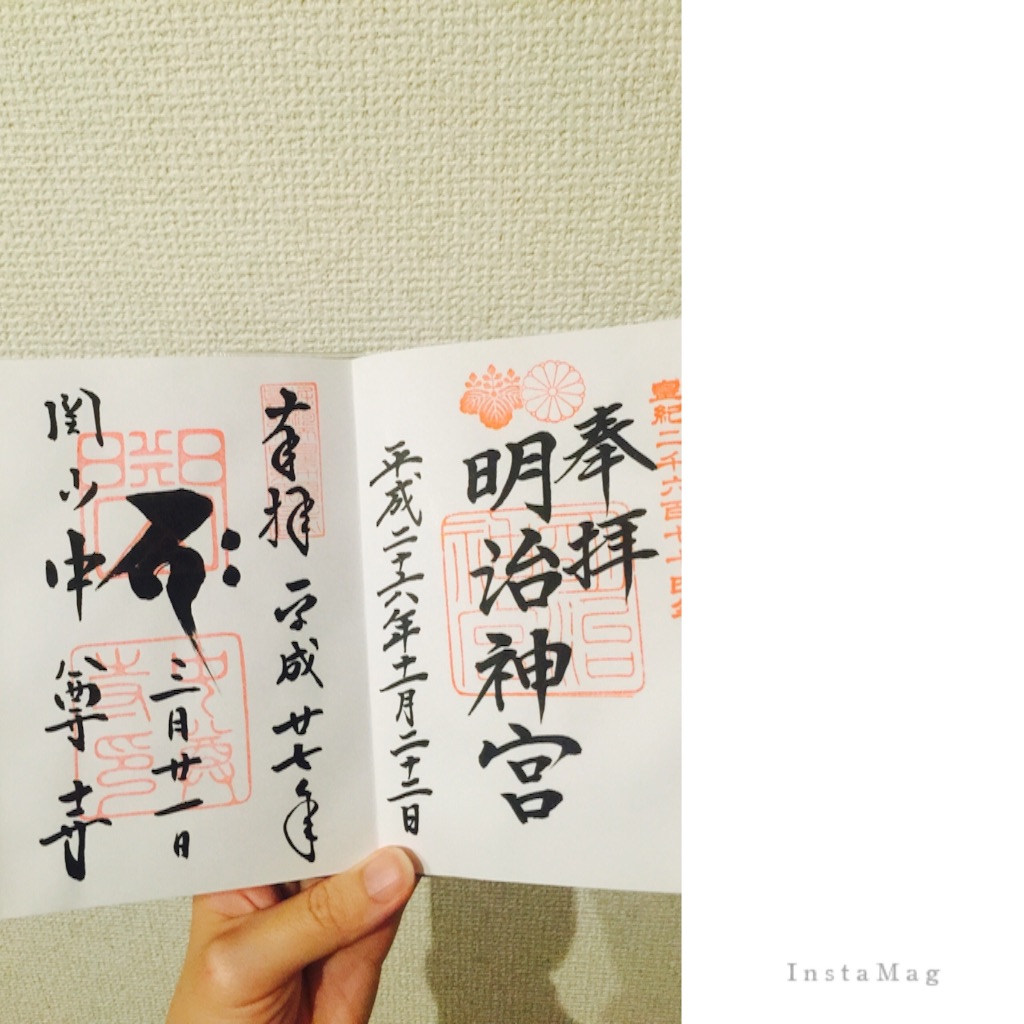 皇紀二千六百七十四年
奉拝
明治神宮
平成二十六年十二月二十二日
奉拝 平成廿七年
三月廿一日
中尊寺
InstaMag